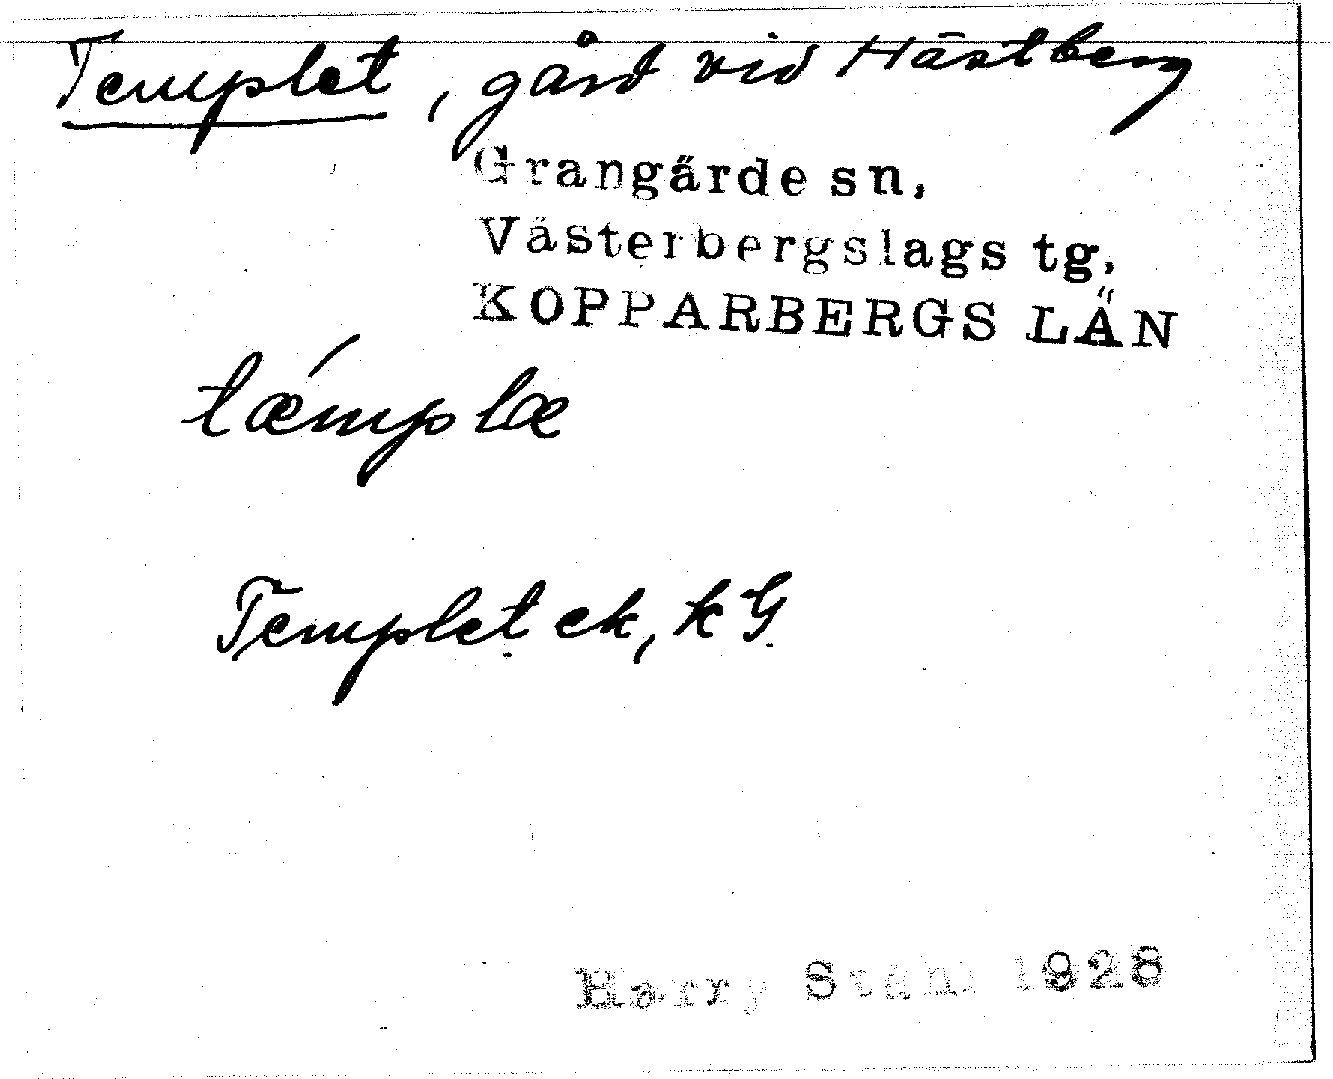 Templet, gård vid Hästberg
Grangärde sn,
Västerbergslags tg,
KOPPARBERGS LÄN
tæ´mplæ
Templet ek, kG
Harry Ståhl 1928